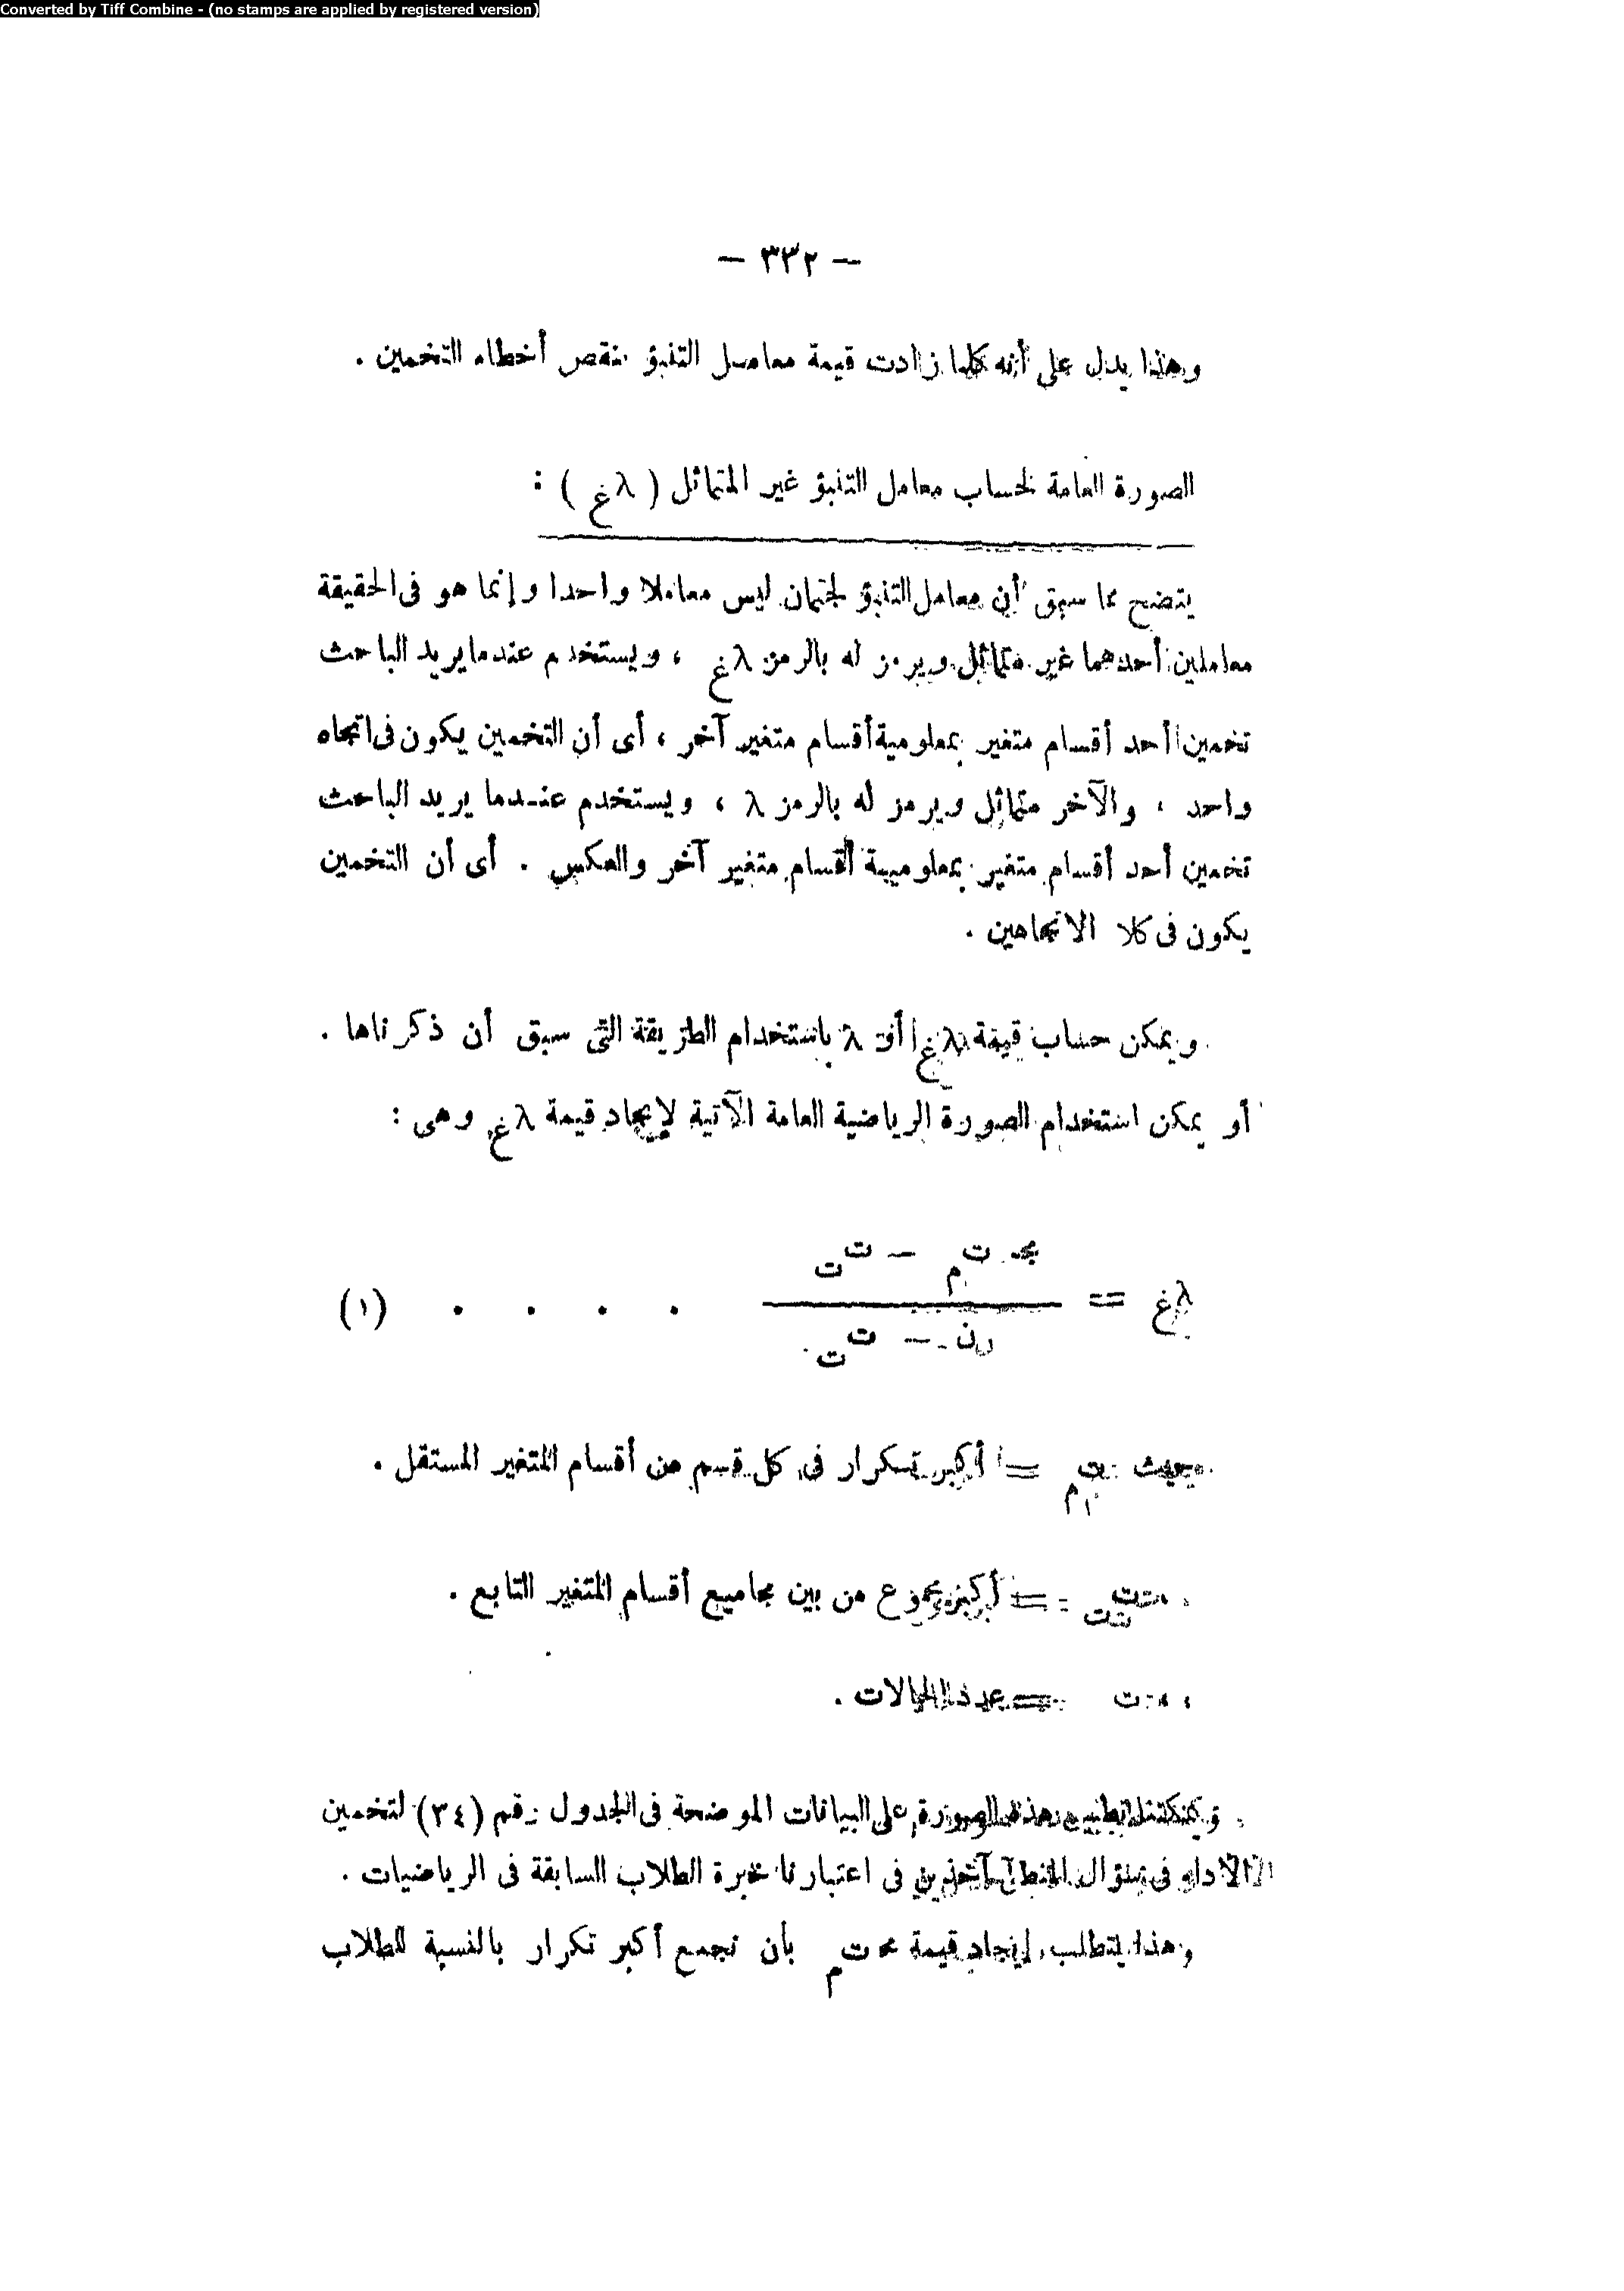 Converted by Tiff Combine - (no stamps are applied by registered version)
— ٣٣٢ —
وهذا يدل على أنه كلما زادت قيمة معامل التنبؤ تنقص أخطاء التخمين .
الصورة العامة لحساب معامل التنبؤ غير المتماثل ( λغ ) :
يتضح مما سبق أن معامل التنبؤ لجتمان ليس معاملا واحدا وإنما هو فى الحقيقة
معاملين أحدهما غير متماثل ويرمز له بالرمز λغ ، ويستخدم عندما يريد الباحث
تخمين أحد أقسام متغير بمعلومية أقسام متغير آخر ، أى أن التخمين يكون فى اتجاه
واحد ، والآخر متماثل ويرمز له بالرمز λ ، ويستخدم عندما يريد الباحث
تخمين أحد أقسام متغير بمعلومية أقسام متغير آخر والعكس . أى أن التخمين
يكون فى كلا الاتجاهين .
ويمكن حساب قيمة λغ أو λ باستخدام الطريقة التى سبق أن ذكرناها .
أو يمكن استخدام الصورة الرياضية العامة الآتية لإيجاد قيمة λغ وهى :
مجـ ت م — ت ت
λغ = . . . . (١)
ن — ت ت
حيث ت م = أكبر تكرار فى كل قسم من أقسام المتغير المستقل .
، ت ت = أكبر مجموع من بين مجاميع أقسام المتغير التابع .
، = عدد الحالات .
ويمكننا تطبيق هذه الصورة على البيانات الموضحة فى الجدول رقم (٣٤) لتخمين
الأداء فى سؤال المنطق آخذين فى اعتبارنا خبرة الطلاب السابقة فى الرياضيات .
وهذا يتطلب إيجاد قيمة مجـ ت م بأن نجمع أكبر تكرار بالنسبة للطلاب